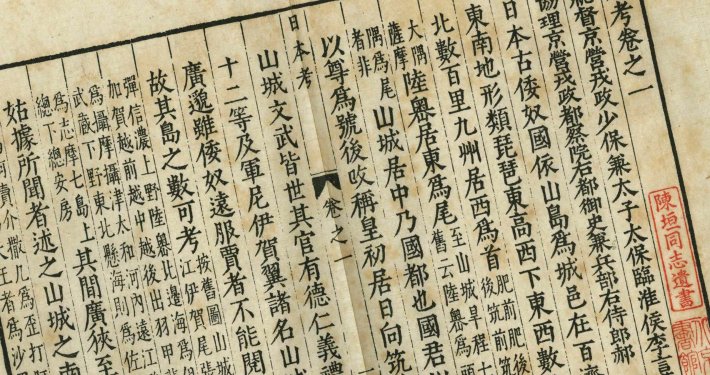 考卷之一
總督京營戎政少保兼太子太保臨淮侯李言
協理京營戎政都察院右都御史兼兵部右侍郎郝
日本古倭奴國依山島爲城邑在百濟
東南地形類琵琶東高西下東西數
北數百里九州居西爲首
肥前肥
後筑前筑
大隅
薩摩
陸奥居東爲尾
至山城早程七
舊云陸奥爲
隅爲尾
者非
山城居中乃國都也國君
以尊爲號後改稱皇初居日向筑
日本考
卷之一
山城文武皆世其官有德仁義禮
十二等及軍尼伊賀翼諸名山
廣邈雖倭奴遠服賈者不能閱
故其島之數可考
按舊圖山城
江伊賀尾張
彈信濃上野陸奥比邊海爲
加賀越前越中越後出羽甲
爲攝摩攝津太和河內遠江
武藏下野東北懸海則爲佐
爲志摩七島上
總下總安房
其間廣狹至
姑據所聞者述之山城之南
陳垣同志遺書